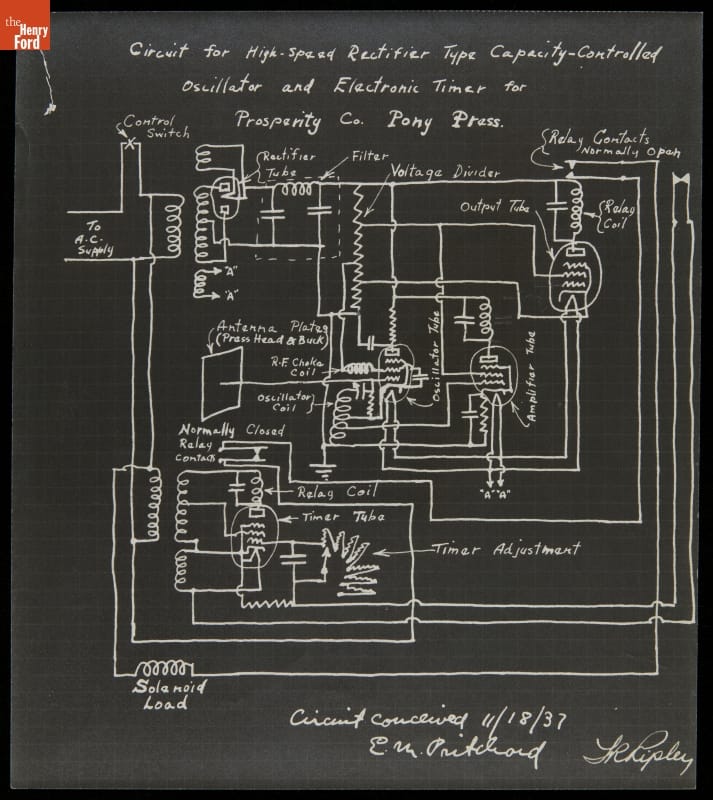 the
Henry
Ford
Circuit for High-Speed Rectifier Type Capacity-Controlled
Oscillator and Electronic Timer for
Prosperity Co. Pony Press.
Control
Switch
Relay Contacts
Normally Open
Rectifier
Tube
Filter
Voltage Divider
Output Tube
Relay
Coil
To
A.C.
Supply
"A"
"A"
Antenna Plates
(Press Head & Buck)
R.F. Choke
Coil
Oscillator
Coil
Oscillator Tube
Amplifier Tube
Normally Closed
Relay
Contacts
"A" "A"
Relay Coil
Timer Tube
Timer Adjustment
Solenoid
Load
Circuit conceived 11/18/37
E.M. Pritchard